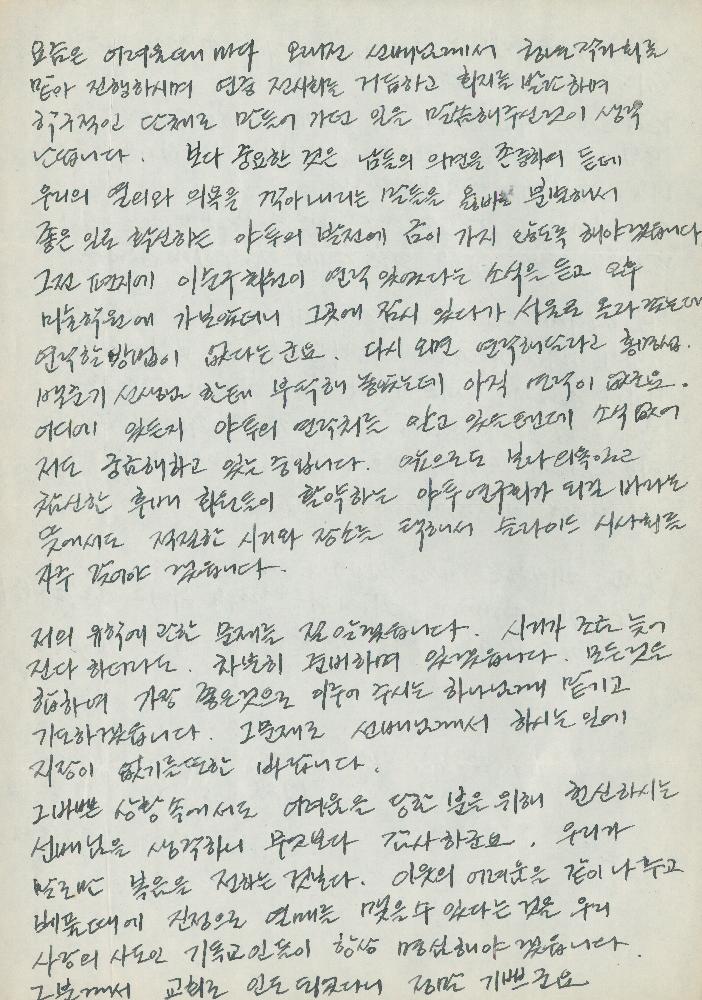 요즘은 어려울때 마다 오래전 선배님께서 청년작가회를
맡아 진행하시며 연중 전시회를 거듭하고 회지를 발간하며
학구적인 단체로 만들어 가던 일을 말씀해주신것이 생각
난답니다. 보다 중요한 것은 남들의 의견을 존중하여 듣데
우리의 열의와 의욕을 꺾어내리는 말들을 올바로 분별해서
좋은 일로 확신하는 야투의 발전에 금이 가지 않도록 해야겠습니다
그전 편지에 이순구 회원이 연락 있었다는 소식을 듣고
미술학원에 가보았더니 그곳에 잠시 있다가 서울로 올라갔는데
연락할 방법이 없다는군요. 다시 오면 연락해달라고
선생님 한테 부탁해 놓았는데 아직 연락이 없군요.
어디에 있든지 야투의 연락처를 알고 있을텐데 소식 없어
저도 궁금해하고 있는 중입니다. 앞으로도 보다 의욕있고
참신한 후배 회원들이 활약하는 야투연구회가 되길 바라는
뜻에서도 적절한 시기와 장소를 택해서 슬라이드 시사회를
자주 갖어야 겠습니다.
저의 유학에 관한 문제를 잘 알겠습니다. 시기가 조금 늦어
진다 하더라도. 차분히 준비하며 있겠습니다. 모든것을
합하여 가장 좋은것으로 이루어 주시는 하나님께 맡기고
기도하겠습니다. 그문제로 선배님께서 하시는 일에
지장이 없기를 또한 바랍니다.
그바쁜 상황속에서도 어려움을 당한 분을 위해 헌신하시는
선배님을 생각하니 무엇보다 감사하군요. 우리가
말로만 복음을 전하는 것보다. 이웃의 어려움을 같이 나누고
베풀때에 진정으로 열매를 맺을수 있다는 것을 우리
사랑의 사도인 기독교인들이 항상 명심해야 겠습니다.
그분께서 교회로 인도 되었다니 정말 기쁘군요